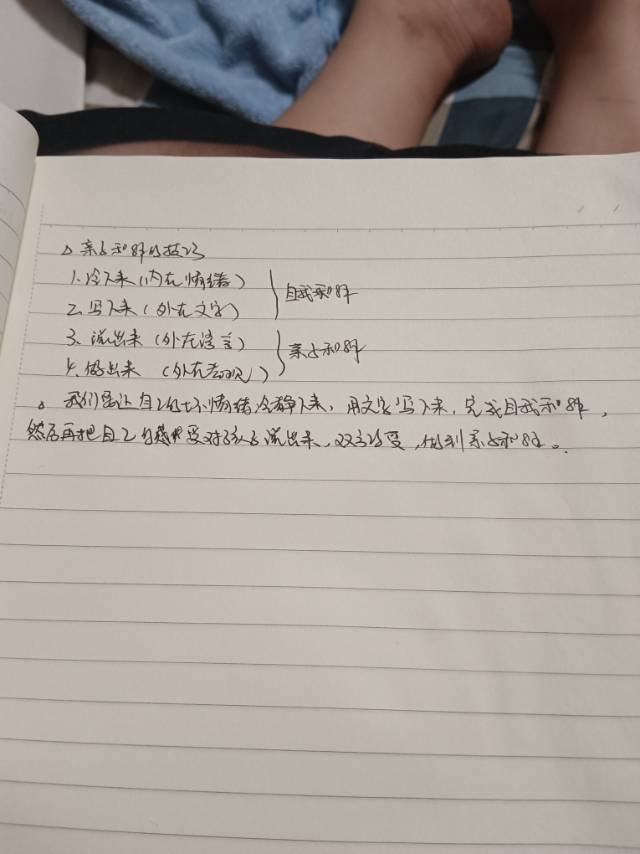 △ 亲子和解的技巧
1. 冷下来(内在情绪)
2. 写下来(外在文字)
自我和解
3. 说出来(外在语言)
4. 做出来(外在表现)
亲子和解
。我们要让自己的坏情绪冷静下来,用文字写下来,完成自我和解,
然后再把自己的感受对孩子说出来,双方,做到亲子和解。